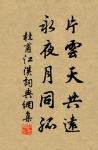 片雲天共遠
永夜月同孤
杜甫江漢詞典網集